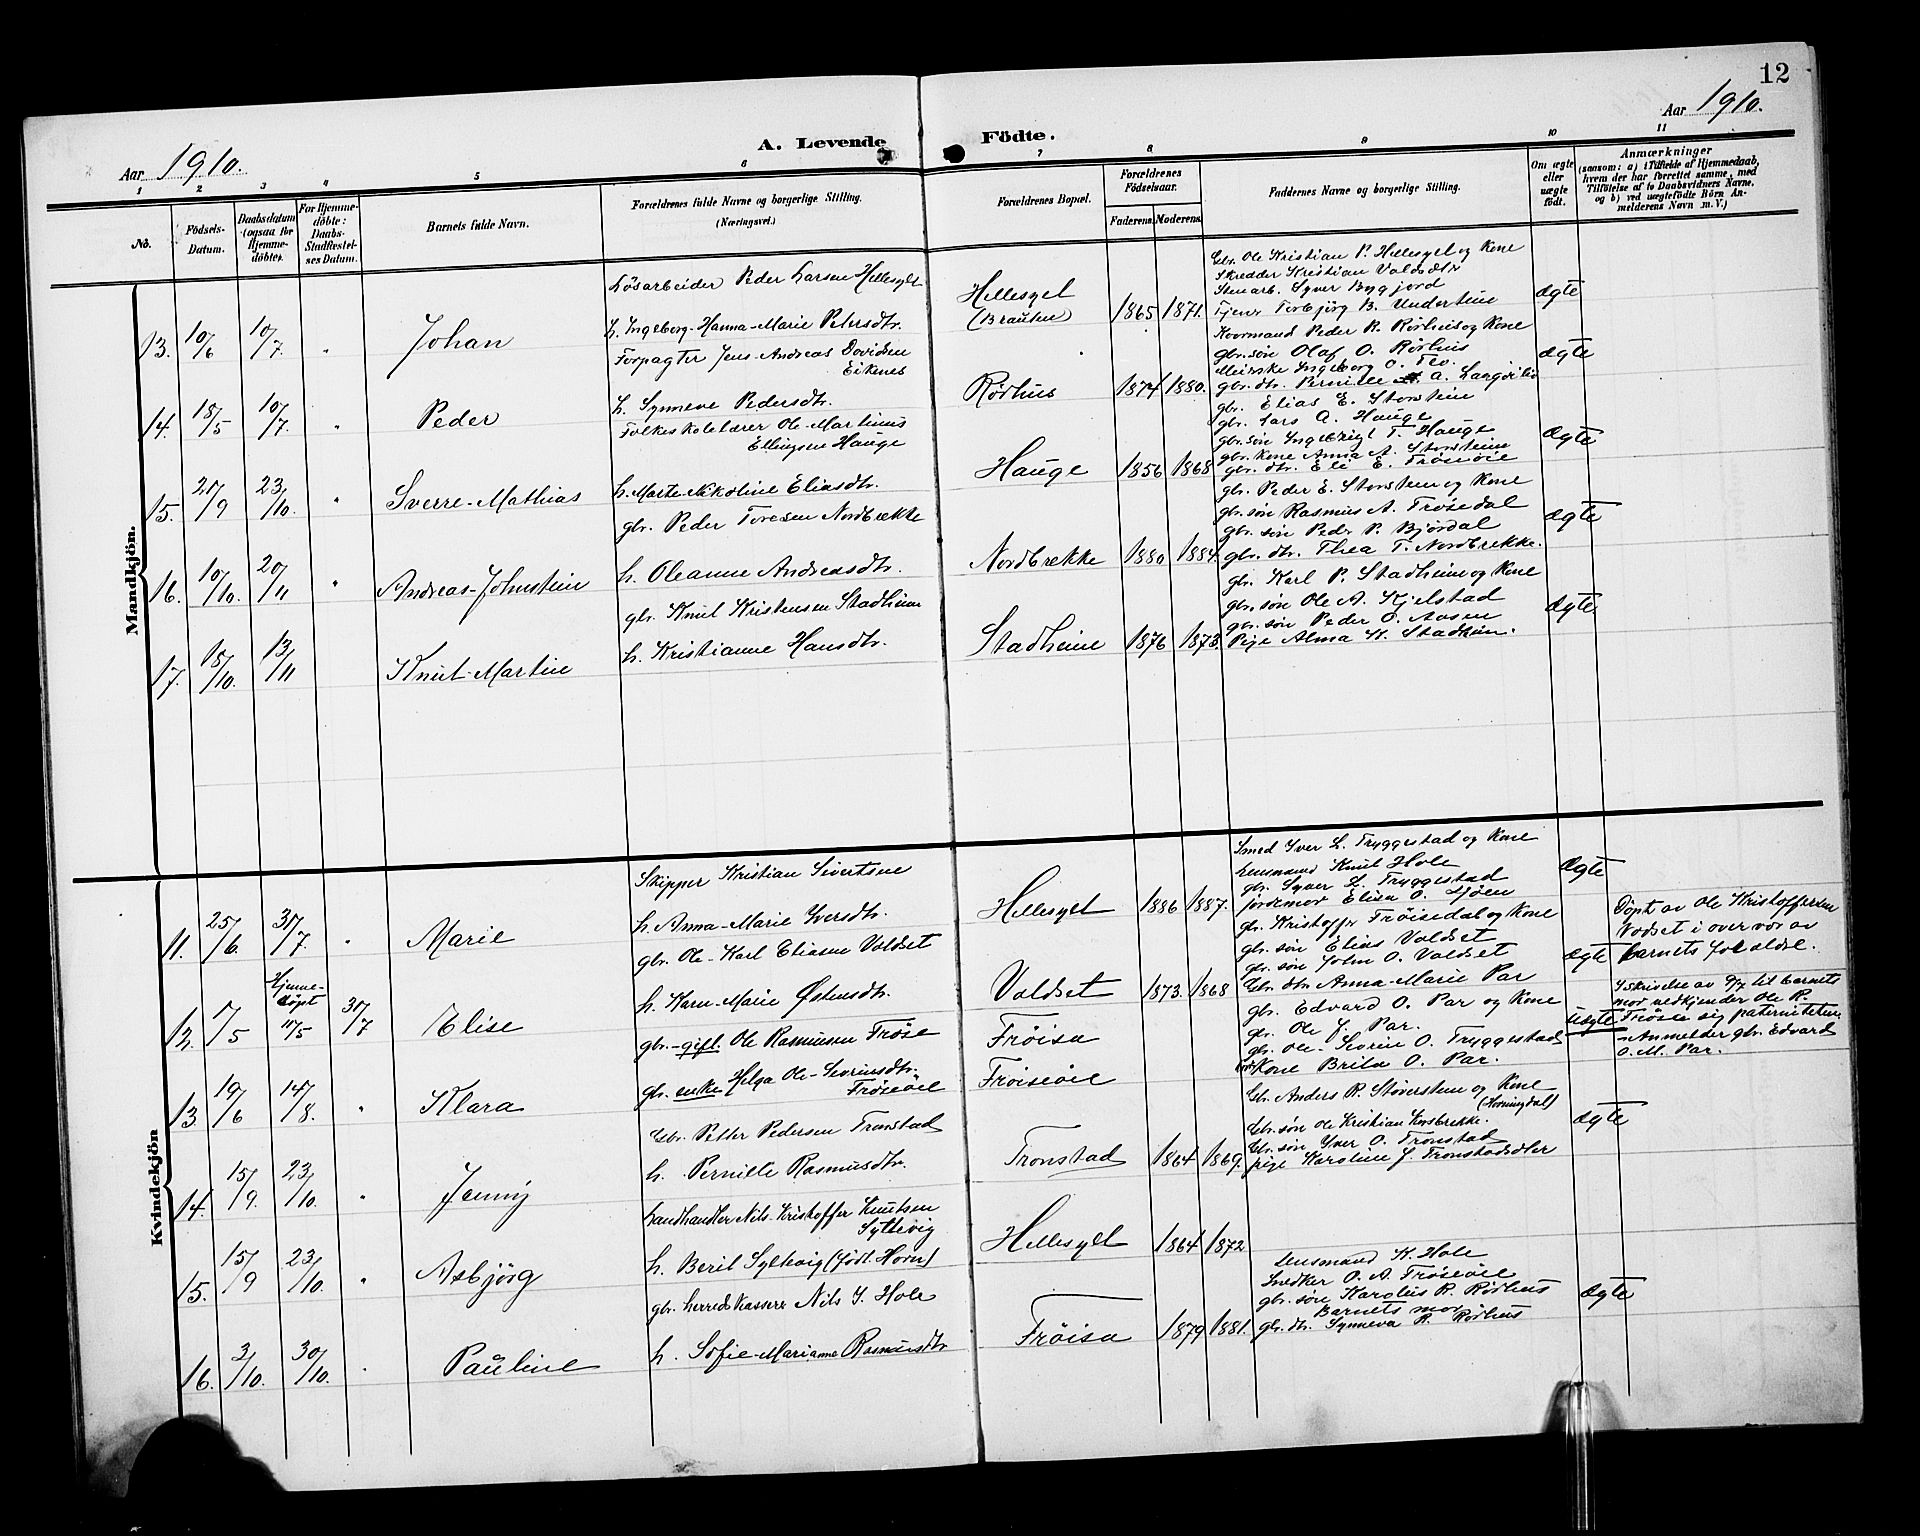 12
Aar 1910.
Aar 1910.
A. Levende Födte.
1 2 3 4 5 6 7 8 9 10 11
No.
Födsels-Datum.
Daabsdatum (ogsaa for Hjemmedöbte).
For Hjemmedöbte: Daabs-Stadfæstelses Datum.
Barnets fulde Navn.
Forældrenes fulde Navne og borgerlige Stilling.
(Næringsvei.)
Forældrenes Bopæl.
Forældrenes Födselsaar.
Faderens. Moderens.
Faddernes Navne og borgerlige Stilling.
Om ægte eller uægte födt.
Anmærkninger
(saasom: a) i Tilfælde af Hjemmedaab,
hvem der har forrettet samme, med
Tilföielse af to Daabsvidners Navne,
og b) ved uægtefödte Börn Anmelderens Navn m. V.)
Mandkjön.
13. 10/6 10/7 " Johan
Lösarbeider Peder Larsen Hellesylt
h. Ingeborg-Hanna-Marie Petersdtr.
Hellesylt
(Brauten)
1865 1871.
Gbr. Ole Kristian P. Hellesylt og Kone
Skredder Kristian Valdsdtr
Stenarb. Syver Bygjord
Tjener Torbjörg B. Undertun
ægte
14. 18/5 10/7. " Peder
Forpagter Jens-Andreas Davidsen
Eikenes
h. Synneve Pedersdtr.
Rörhus
1874 1880.
Koormand Peder R. Rörhus og Kone
gbr. sön Olaf O. Rörhus
Meierske Ingeborg O. Tev.
gbr. dtr. Pernille A. Langvilen
ægte
15. 21/9 23/10. " Sverre-Mathias
Folkeskolelærer Ole-Martinus
Ellingsen Hauge
h. Marte-Nikoline Eliasdtr.
Hauge
1856 1868
gbr. Elias E. Storstein
gbr. Lars A. Hauge
gbr. sön Ingebrigt T. Hauge
gbr. Kone Anna A. Storstein
gbr. dtr. Eli E. Fröseöie
ægte
16. 10/10. 20/11 " Andreas-Johnstein
gbr. Peder Toresen Nordbrekke
h. Oleanne Andreasdtr.
Nordbrekke
1880 1884.
gbr. Peder E. Storstein og Kone
gbr. sön Rasmus A. Frösedal
gbr. sön Peder P. Bjørdal
gbr. dtr. Thea T. Nordbrekke.
ægte
17. 18/10. 13/11 Knut-Martin
gbr. Knut Kristensen Stadheim
h. Kristianne Hansdtr.
Stadheim
1876 1873.
gbr. Karl P. Stadheim og Kone
gbr. sön Ole A. Kjelstad
gbr. sön Peder O. Aasen
Pige Alma K. Stadheim.
ægte
Kvindekjön
11. 25/6. 31/7. " Marie
Skipper Kristian Sivertsen
h. Anna-Marie Iversdtr.
Hellesylt
1886 1887.
Smed Iver L. Tryggestad og Kone
Lensmand Knut Hole
gbr. Syver L. Tryggestad
jordemor Elisa O. Sjöen
ægte
12. 1/5 Hjemme-döpt 11/5 31/7 Elise
gbr. Ole-Karl Eliasen Valdset
h. Karn-Marie Østensdtr.
Valdset
1873. 1868
gbr. Kristoffer Fröisedal og Kone
gbr. sön Elias Valdset
gbr. sön John O. Valdset
Gbr. dtr. Anna-Marie Par
ægte
Döpt av Ole Kristoffersen
Vadset i overvær av
barnets forældre.
13. 19/6 14/8. " Klara
gbr.-gift. Ole Rasmussen Fröse
gbr. enke Helga Ole-Severinsdtr.
Fröseöie
Fröisa
Fröiseöie
gbr. Edvard O. Par og Kone
gbr. Ole J. Par.
gbr. Ole-Severin O. Tryggestad
Kone Brita O. Par.
uægte
I skrivelse av 9/7 til barnets
mor vedkjender Ole R.
Fröse sig paterniteten
Anmelder gbr. Edvard
O. M. Par.
14. 15/9. 23/10. " Jenny
Gbr. Petter Pedersen Tronstad
h. Pernille Rasmusdtr.
Tronstad
1864 1869.
Gbr. Anders R. Støverstein og Kone
(Hornindal)
Gbr. sön Ole Kristian Korsbrekke.
Gbr. sön Iver O. Tronstad
pige Karoline J. Tronstadsdler
ægte
15. 15/9 23/10. " Asbjörg
Landhandler Nils-Kristoffer Knutsen
Syltevig
h. Berit Syltevig (födt Horn)
Hellesylt
1864 1872
16. 3/10. 30/10. " Pauline
gbr. herredskasserer Nils I. Hole
h. Sofie-Marianne Rasmusdtr
Fröisa
1879 1881.
Lensmand K. Hole
Snedker O. A. Fröseöie
gbr. sön Karolus R. Rörhus
Barnets mor
gbr. dtr. Synneva R. Rörhus
ægte